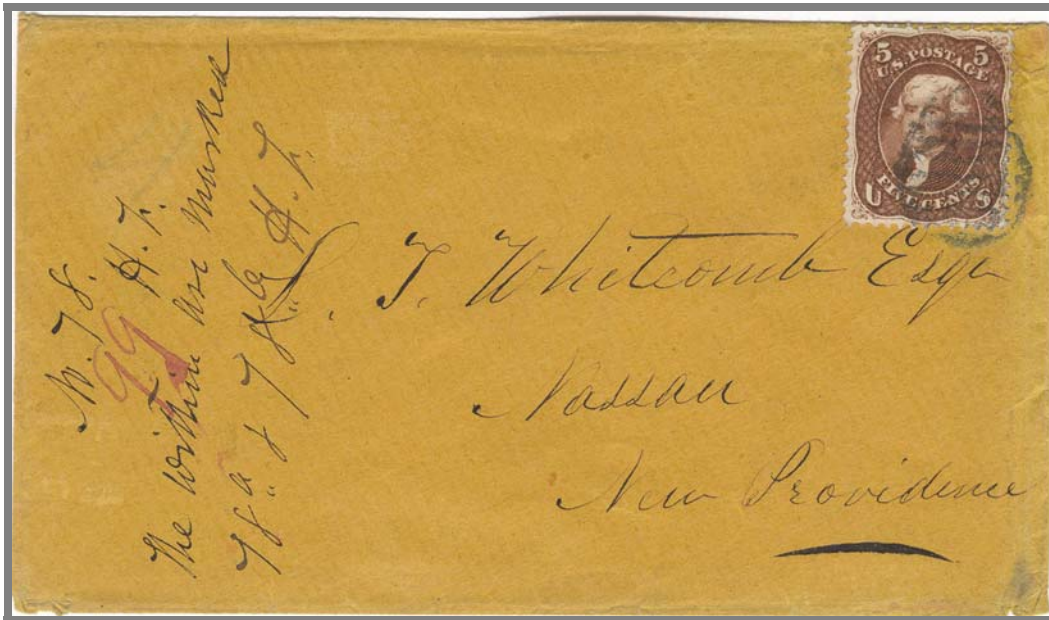 5 5
U.S. POSTAGE
FIVE CENTS
U S
T. Whitcomb Esqr
Nassau
New Providence
No. 78. H. T.
99
The within are marked
78 "a" & 78 "b" H. T.